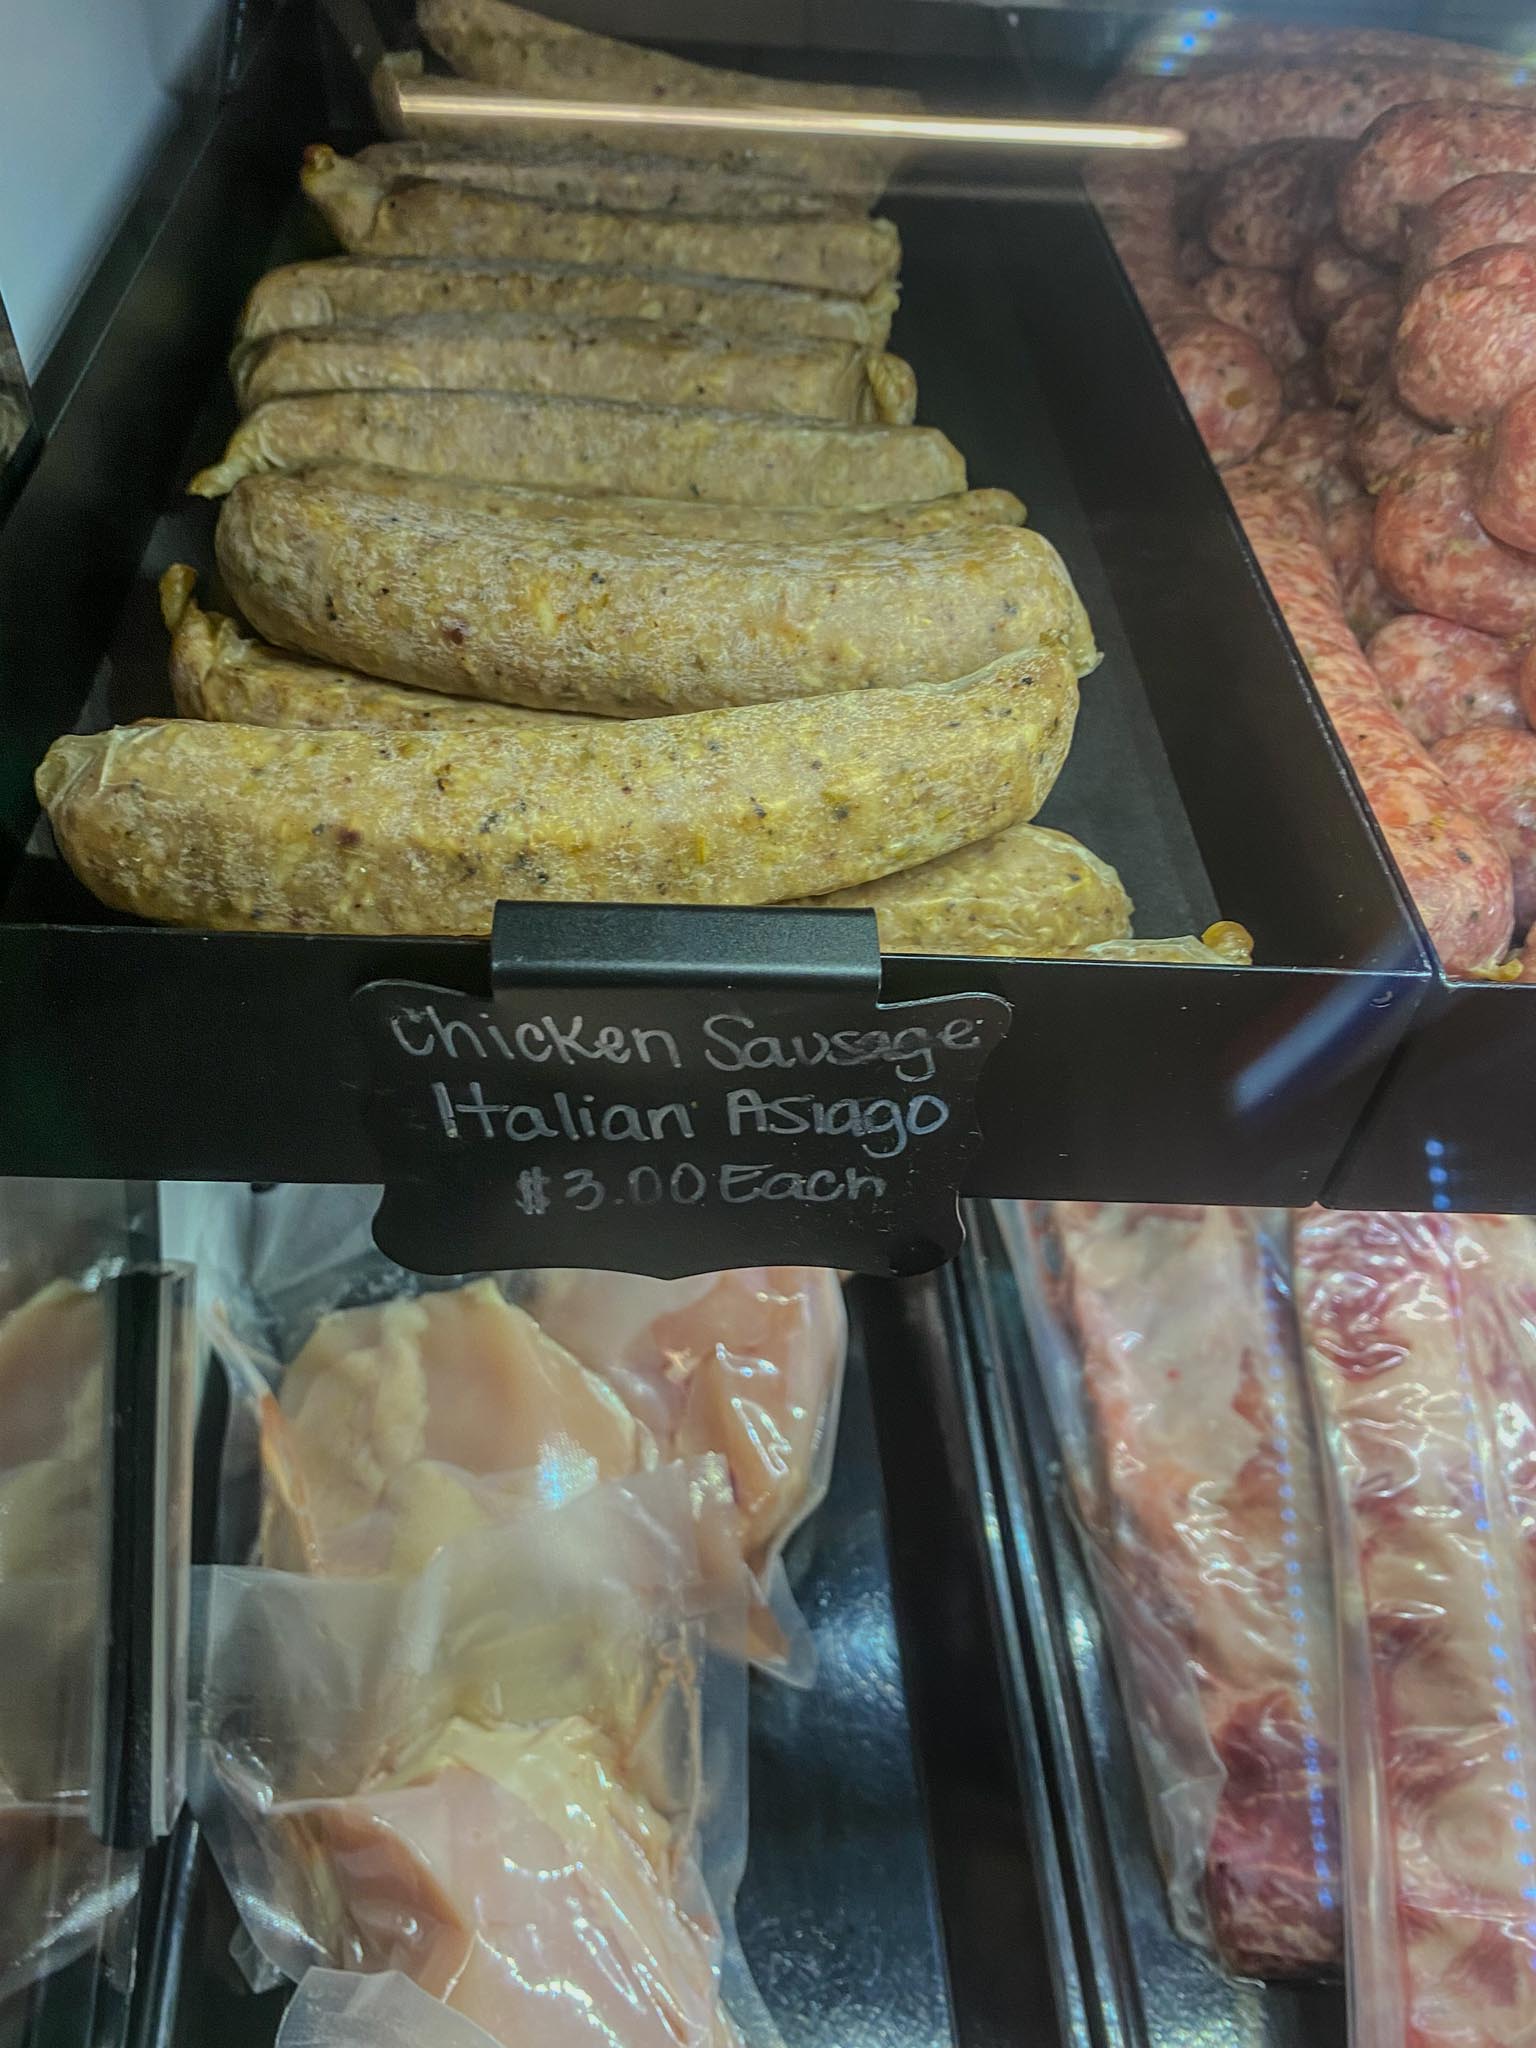 Chicken Sausage
Italian Asiago
$3.00 Each